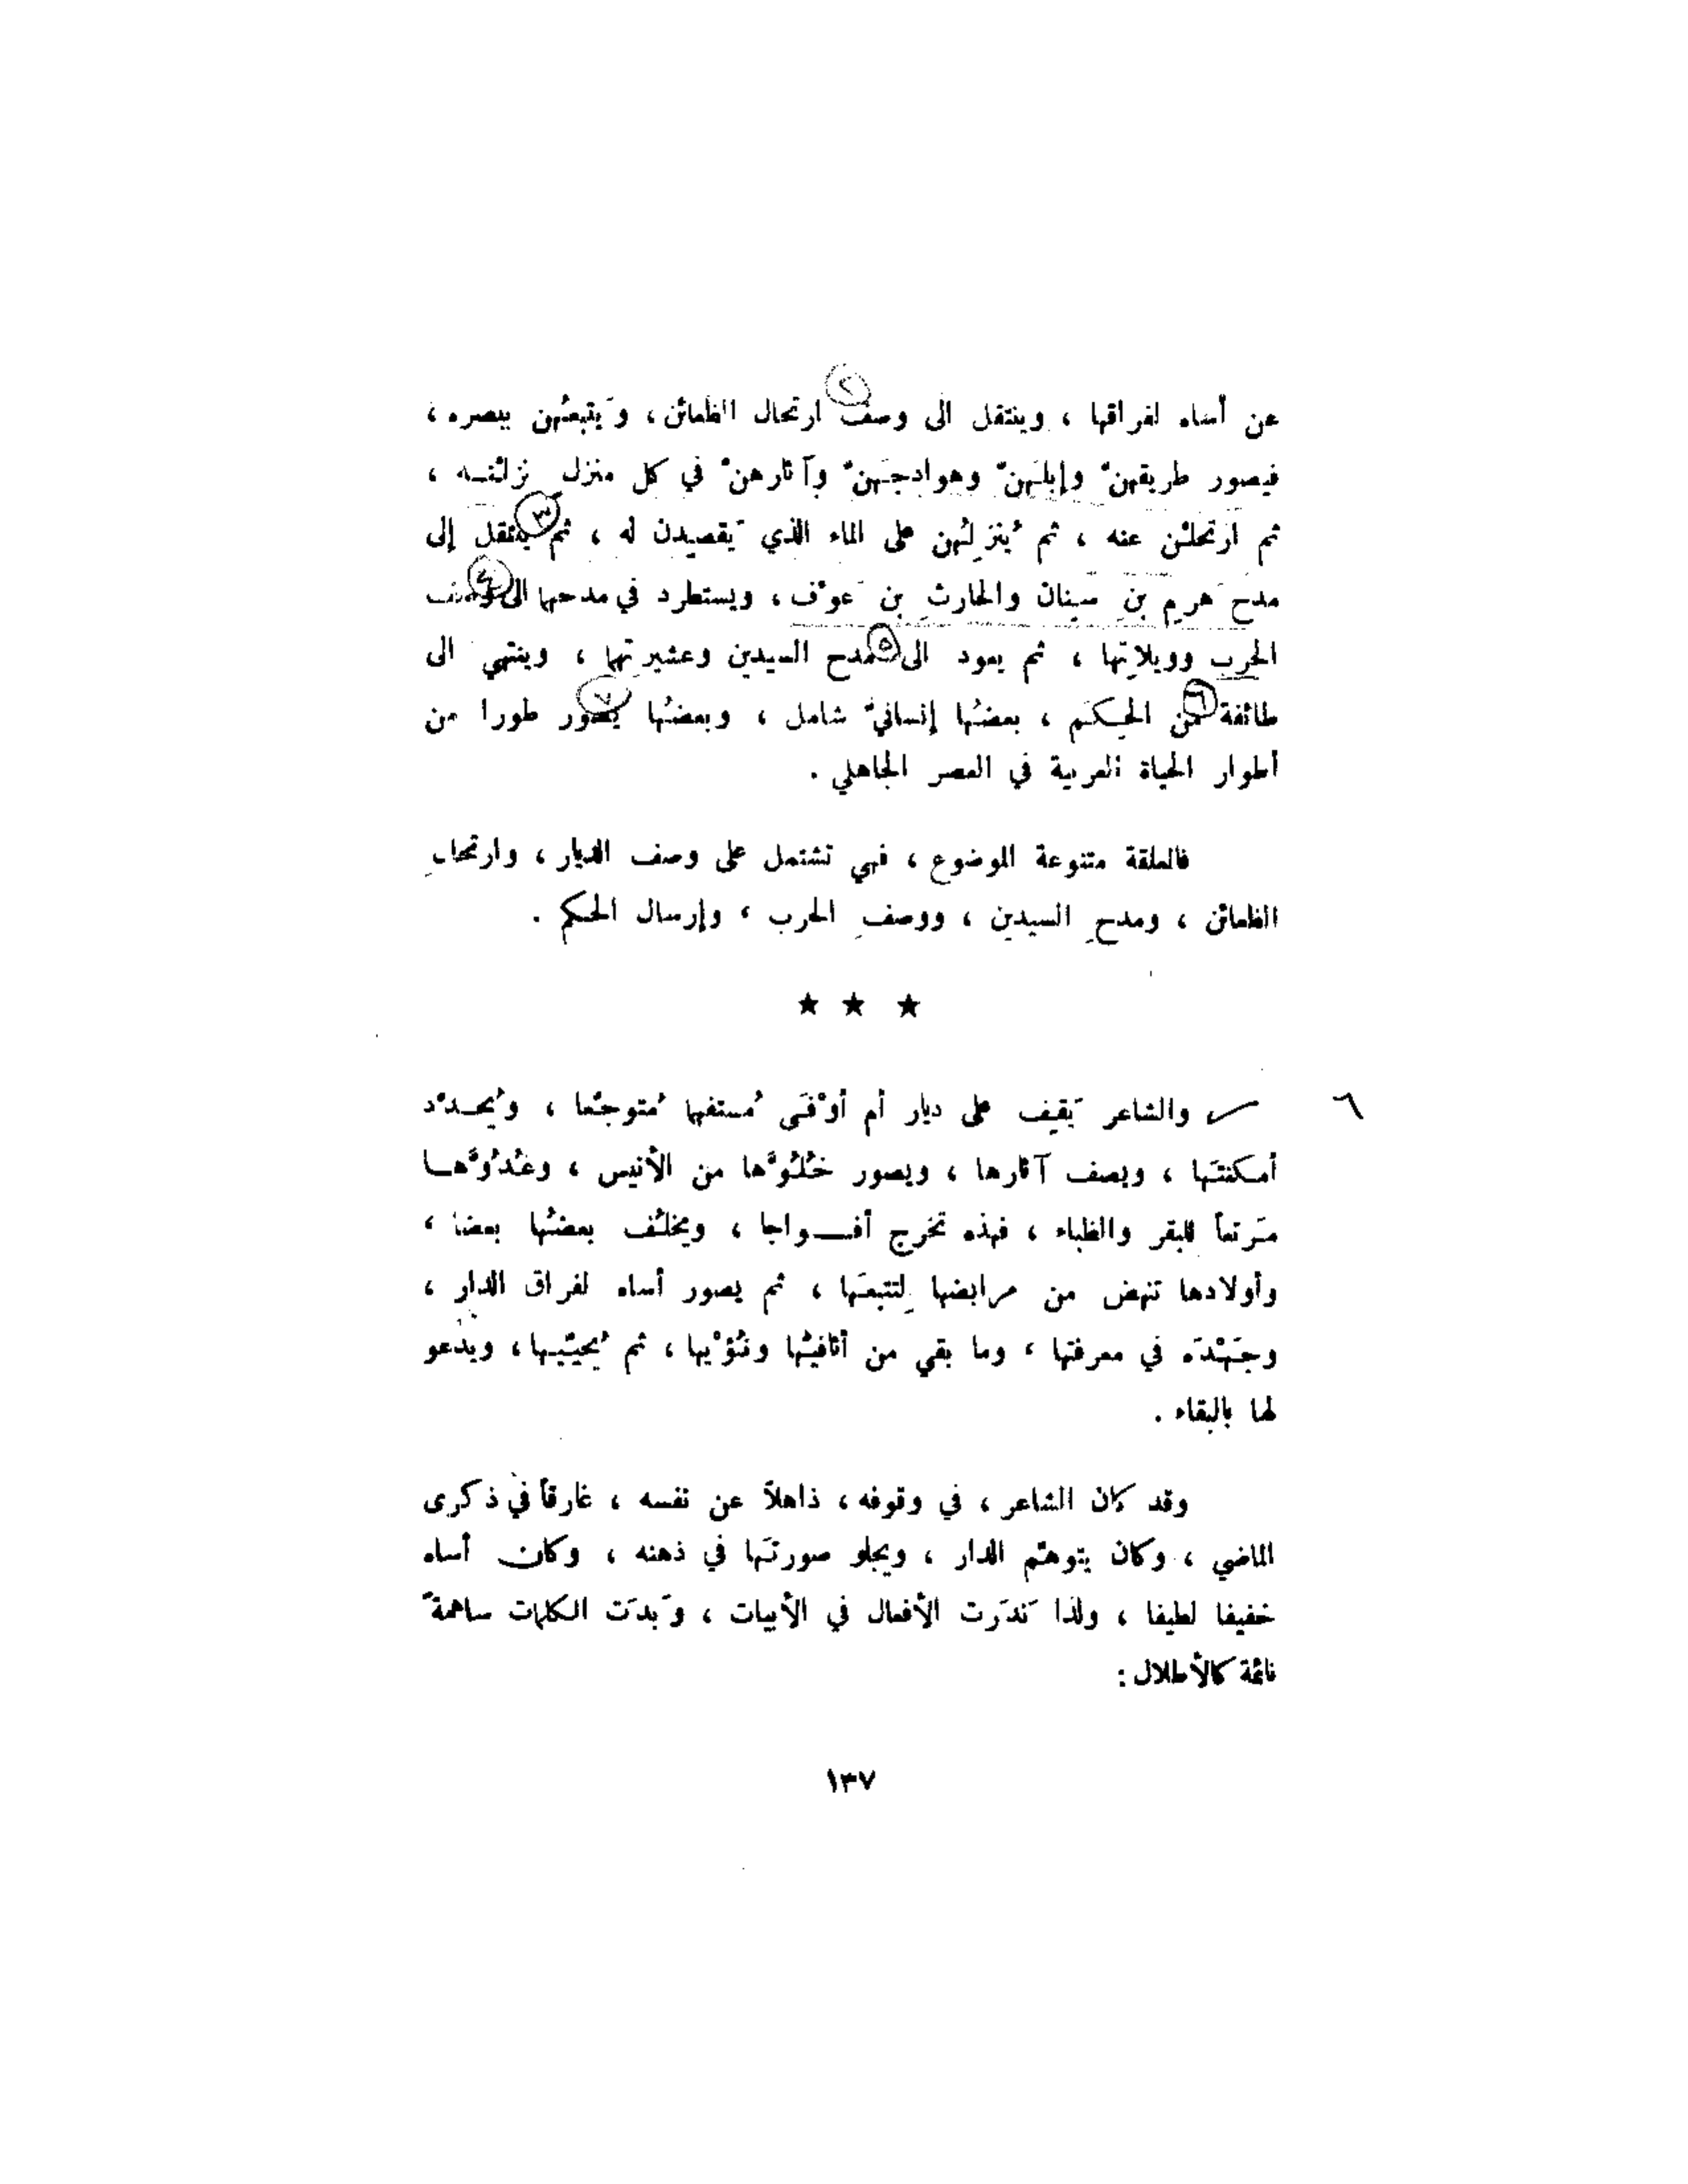 عن أساه لفراقها ، وينتقل الى وصف ارتحال الظعائن ، وَيتبعُهن ببصره ،
فيصور طريقهنّ وإبلَهنّ وهوادجَهنّ وآثارهنّ في كل منزلٍ نزلْنـه ،
ثم ارتحلْن عنه ، ثم يُنزِلُهن على الماء الذي يَقصِدن له ، ثم ينتقل إلى
مدح هَرِمِ بنِ سِنان والحارثِ بن عَوْف ، ويستطرد في مدحهما الى وصف
الحرب وويلاتِها ، ثم يعود الى مدح السيدين وعشيرتهما ، وينتهي الى
طائفة من الحِكَم ، بعضُها إنسانيّ شامل ، وبعضُها يصور طورا من
أطوار الحياة العربية في العصر الجاهلي .
فالمعلقة متنوعة الموضوع ، فهي تشتمل على وصف الديار ، وارتحالِ
الظعائن ، ومدحِ السيدين ، ووصفِ الحرب ، وإرسال الحكم .
★ ★ ★
٦ — والشاعر يَقِف على ديار أم أوْفَى مُستفهِما مُتوجِّعا ، ويُحـدّد
أمكنتَها ، ويصف آثارها ، ويصور خُلُوَّها من الأنيس ، وغُدُوَّهـا
مَرتعاً للبقر والظباء ، فهذه تخرج أفــواجا ، ويخلُف بعضُها بعضا ،
وأولادها تنهض من مرابضها لِتتبعَها ، ثم يصور أساه لفراق الدار ،
وجَهْدَه في معرفتها ، وما بقي من أثافيّها ونُؤْيها ، ثم يُحيّيها ، ويدعو
لها بالبقاء .
وقد كان الشاعر ، في وقوفه ، ذاهلاً عن نفسه ، غارقاً في ذكرى
الماضي ، وكان يتوهّم الدار ، ويجلو صورتَها في ذهنه ، وكان أساه
خفيفا لطيفا ، ولذا نَدَرت الأفعال في الأبيات ، وَبدَت الكلمات ساهمةً
نائمة كالأطلال :
١٣٧